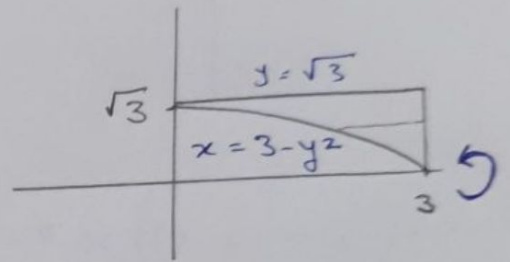 y = √3
√3
x = 3 - y²
3